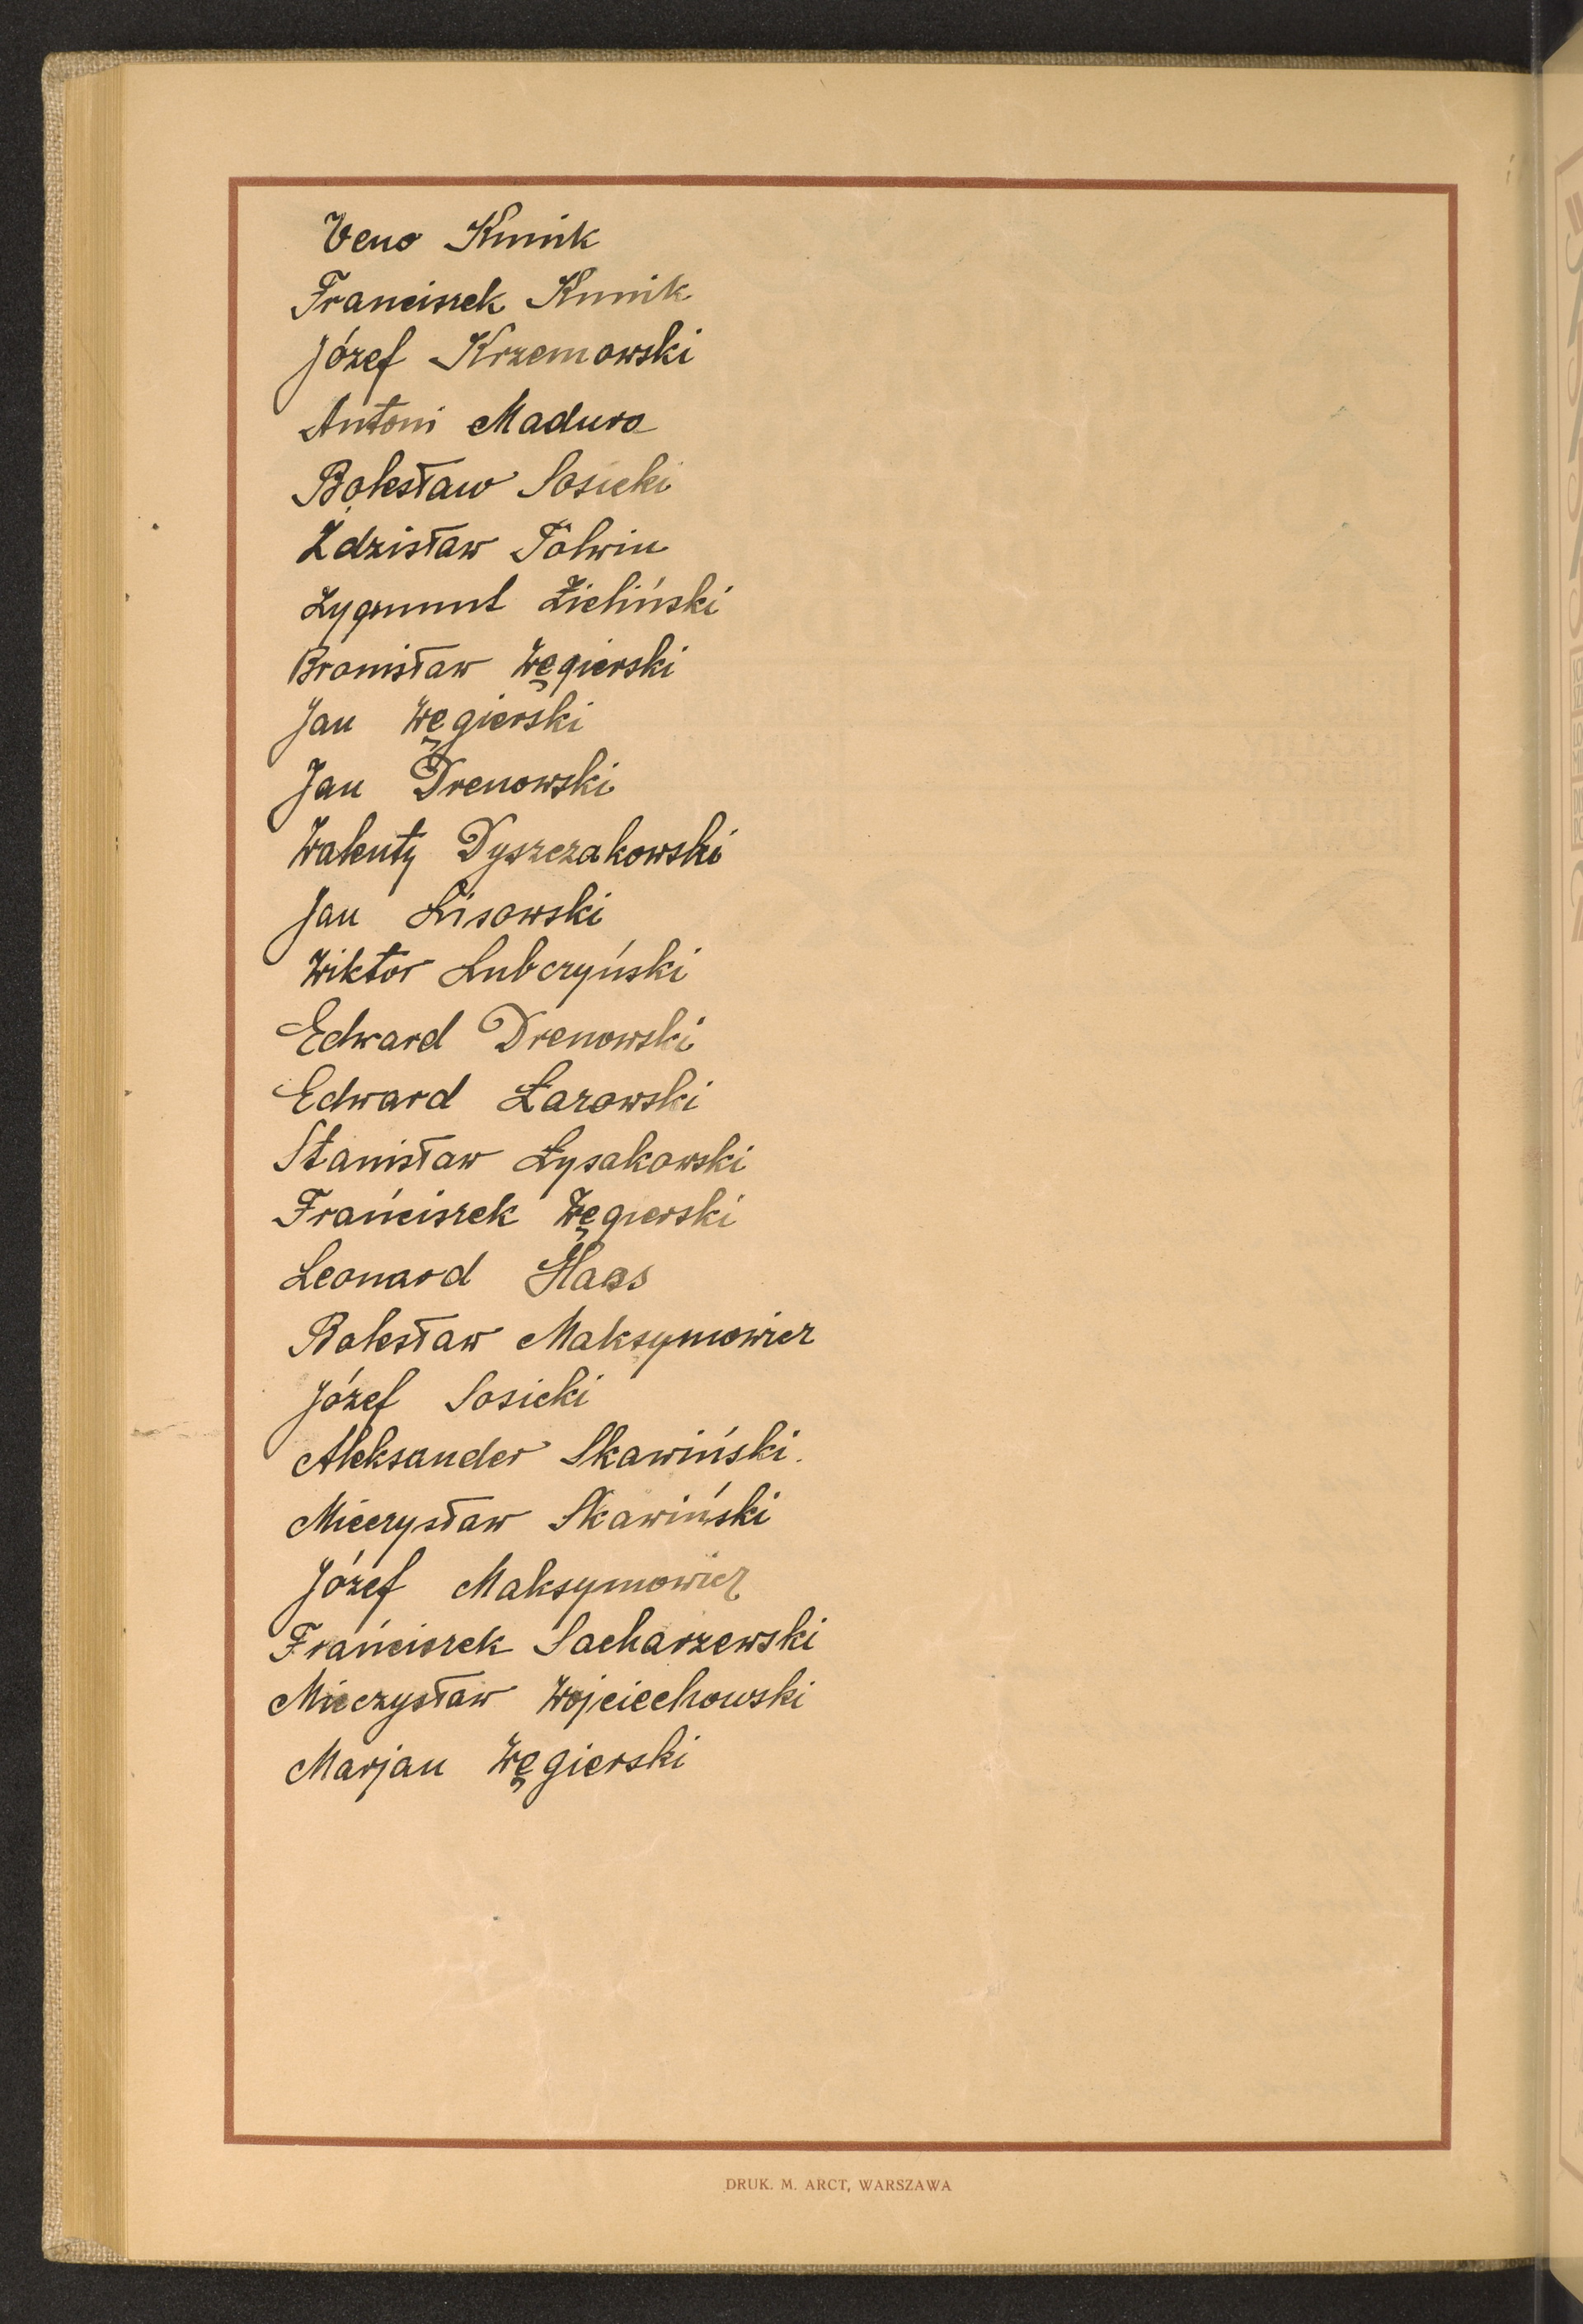 Veno Kunik
Franciszek Kunik
Józef Krzemowski
Antoni Madura
Bolesław Sosicki
Zdzisław Polwin
Zygmunt Zieliński
Bronisław Węgierski
Jan Węgierski
Jan Drenowski
Walenty Dyszczakowski
Jan Lisowski
Wiktor Lubczyński
Edward Drenowski
Edward Łazowski
Stanisław Łysakowski
Franciszek Węgierski
Leonard Haas
Bolesław Maksymowicz
Józef Sosicki
Aleksander Skawiński.
Mieczysław Skawiński
Józef Maksymowicz
Franciszek Sacharzewski
Mieczysław Wojciechowski
Marjan Węgierski
DRUK. M. ARCT, WARSZAWA